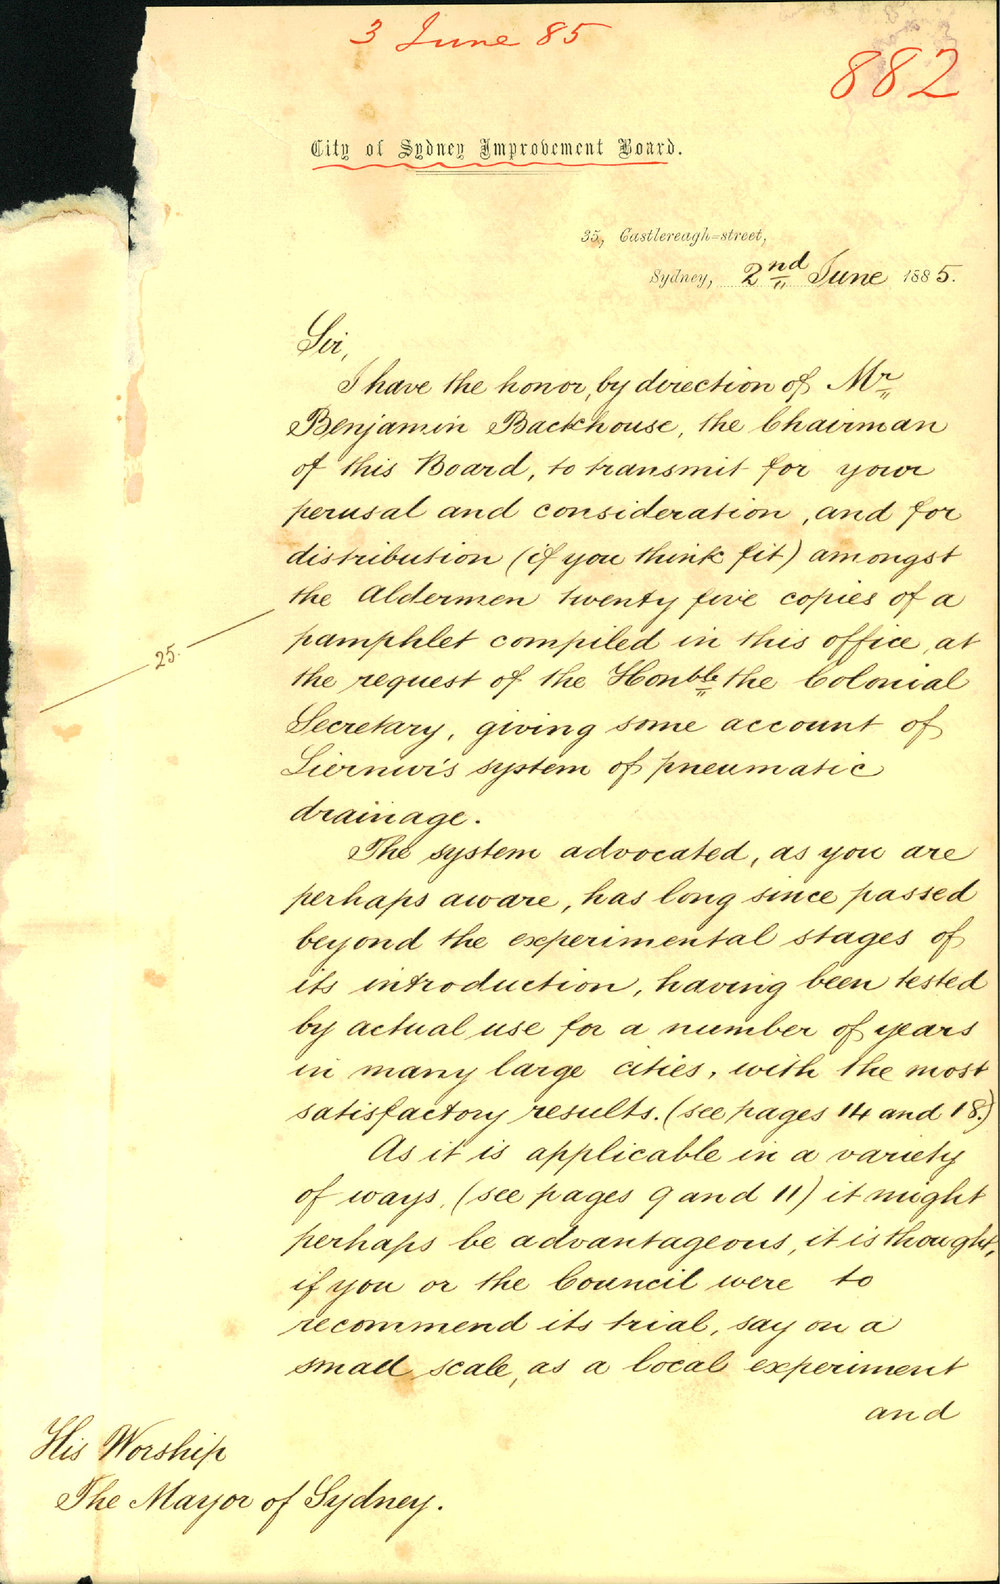 3 June 85
882
City of Sydney Improvement Board.
35, Castlereagh-street,
Sydney, 2nd June 1885.
Sir,
I have the honor, by direction of Mr
Benjamin Backhouse, the Chairman
of this Board, to transmit for your
perusal and consideration, and for
distribution (if you think fit) amongst
the Aldermen twenty five copies of a
25.
pamphlet compiled in this office, at
the request of the Honble the Colonial
Secretary, giving some account of
Liernur's system of pneumatic
drainage.
The system advocated, as you are
perhaps aware, has long since passed
beyond the experimental stages of
its introduction, having been tested
by actual use for a number of years
in many large cities, with the most
satisfactory results. (see pages 14 and 18.)
As it is applicable in a variety
of ways, (see pages 9 and 11) it might
perhaps be advantageous, it is thought,
if you or the Council were to
recommend its trial, say on a
small scale, as a local experiment
and
His Worship
The Mayor of Sydney.